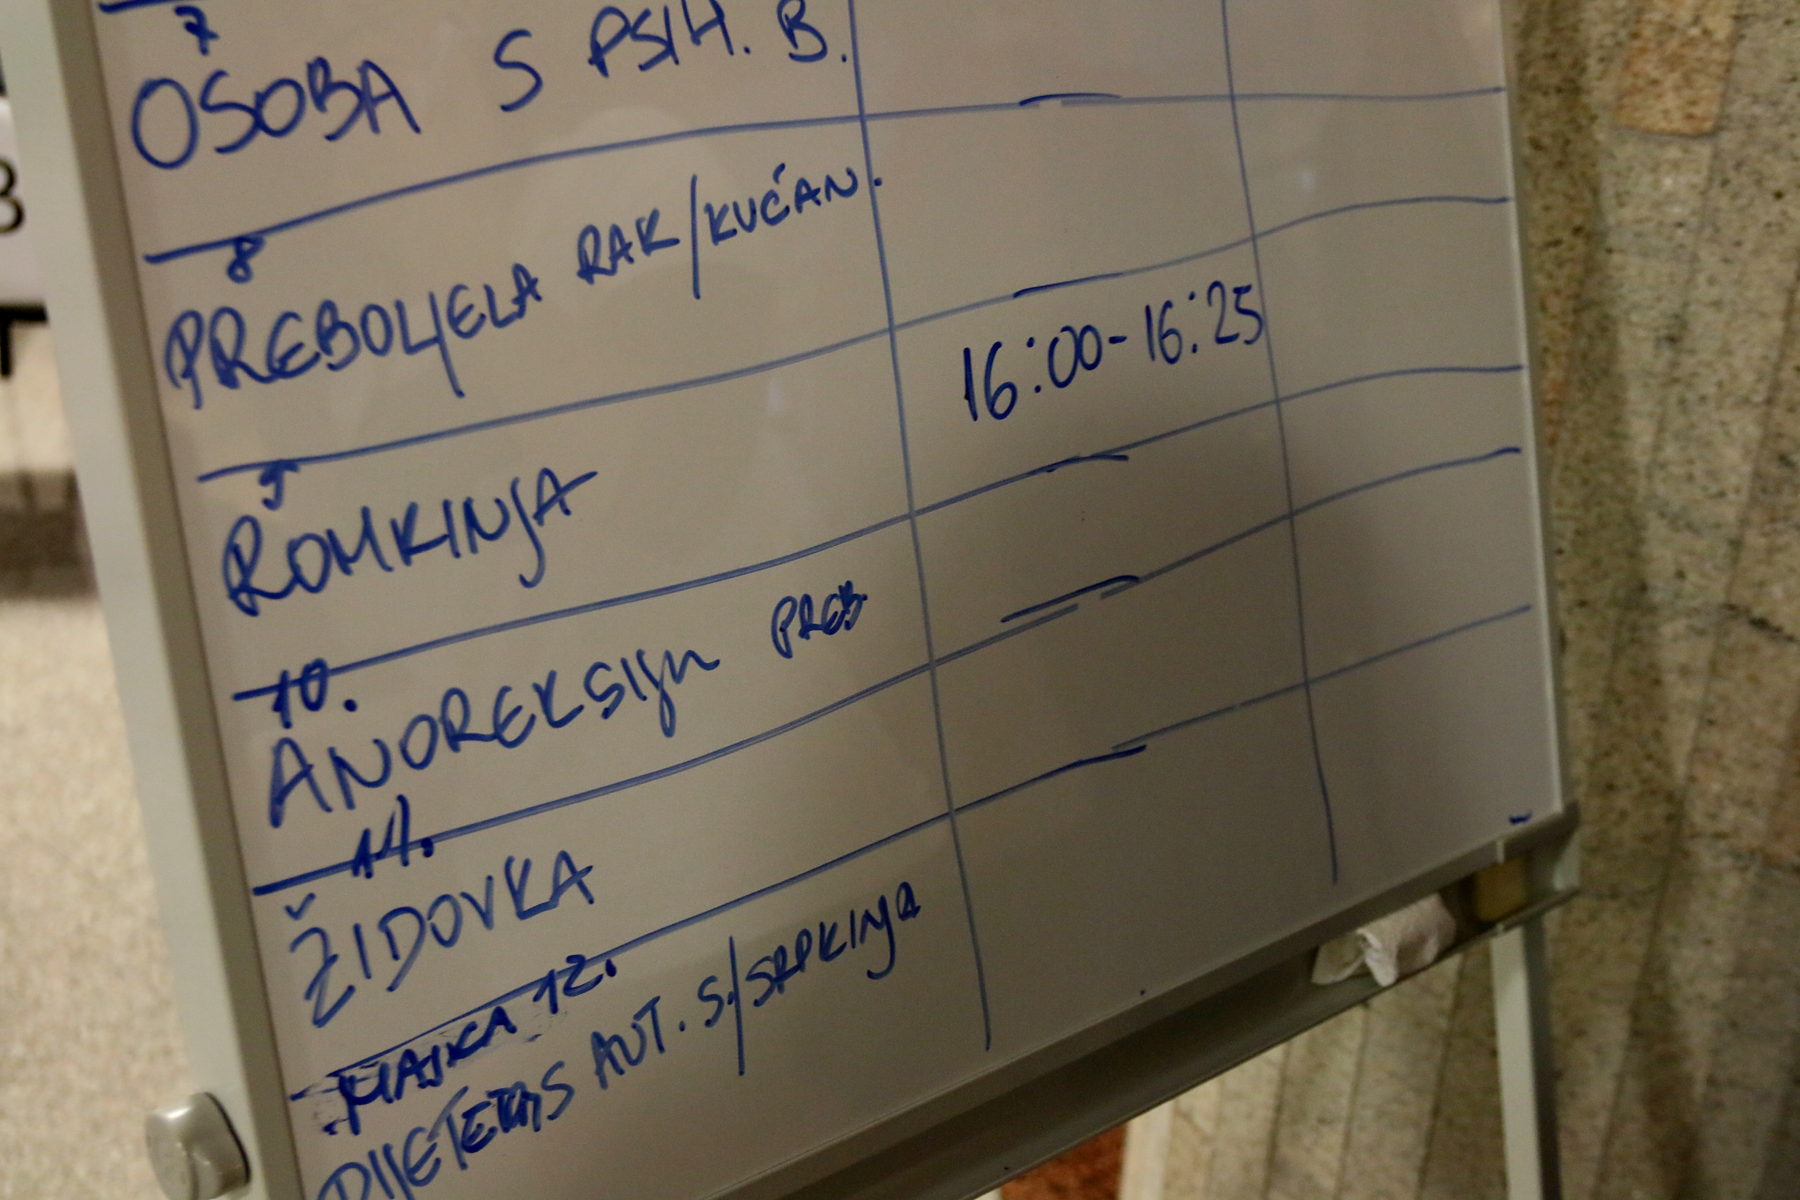 7
OSOBA S PSIH. B.
8
PREBOLJELA RAK/KUĆAN.
9
ROMKINJA 16:00-16:25
10.
ANOREKSIJA PREB.
11.
ŽIDOVKA
12.
MAJKA
DIJETETA S AUT. S/SRPKINJA
3